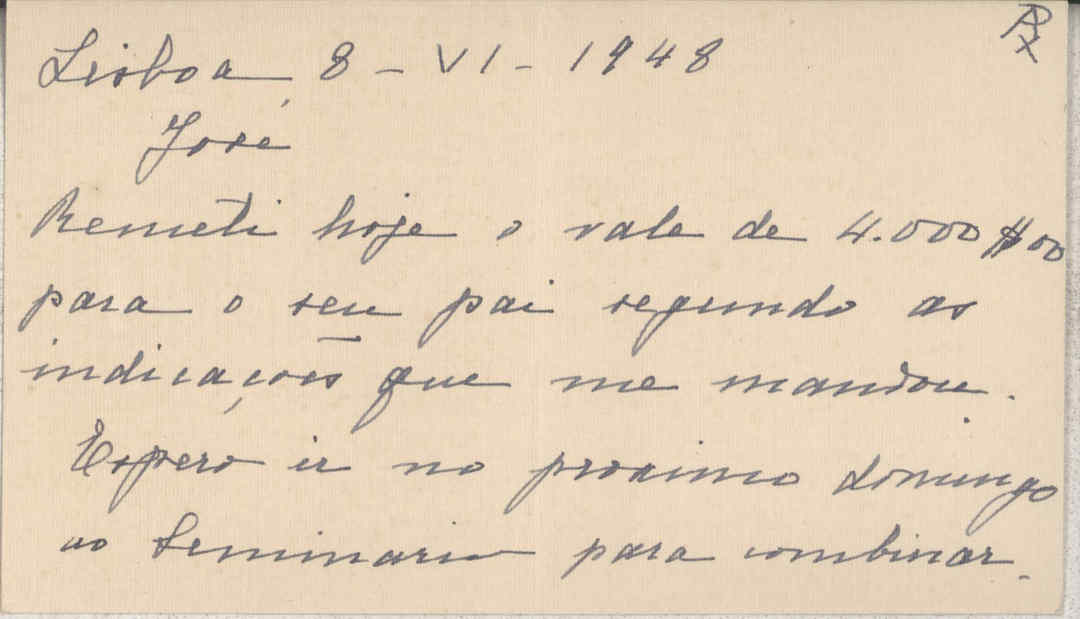 Lisboa, 8 - VI - 1948
José
Remeti hoje o vale de 4.000$00
para o seu pai segundo as
indicações que me mandou.
Espero ir no proximo domingo
ao Seminario para combinar.